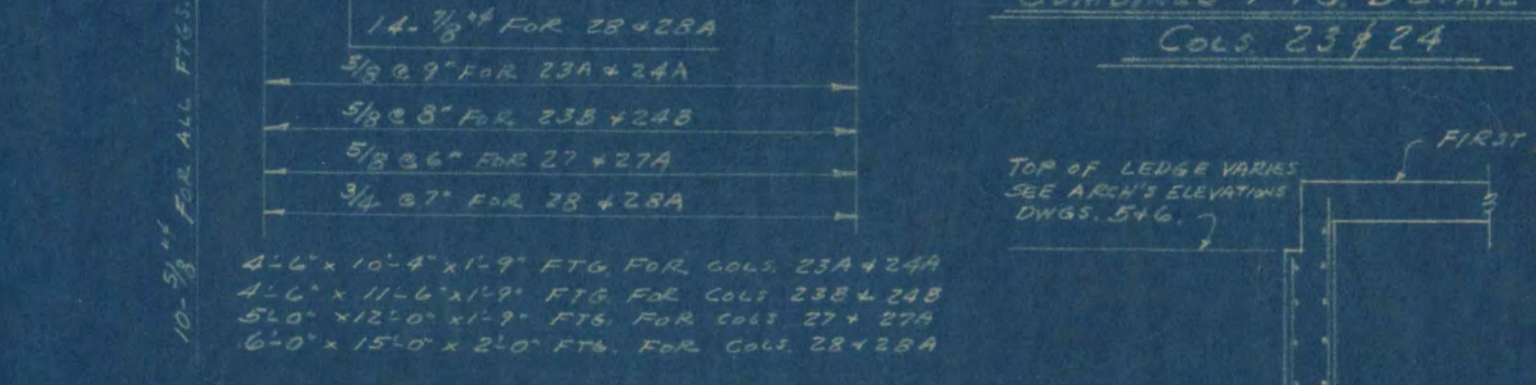 14-7/8"ϕ FOR 28 & 28A
5/8 @ 9" FOR 23A & 24A
5/8 @ 8" FOR 23B & 24B
5/8 @ 6" FOR 27 & 27A
3/4 @ 7" FOR 28 & 28A
4'-6" x 10'-4" x 1'-9" FTG. FOR COLS. 23A & 24A
4'-6" x 11'-6" x 1'-9" FTG. FOR COLS 23B & 24B
5'-0" x 12'-0" x 1'-9" FTG. FOR COLS 27 & 27A
6'-0" x 15'-0" x 2'-0" FTG. FOR COLS. 28 & 28A
10-5/8"ϕ FOR ALL FTGS.
COLS. 23 & 24
FIRST
TOP OF LEDGE VARIES
SEE ARCH'S ELEVATIONS
DWGS. 5 & 6.